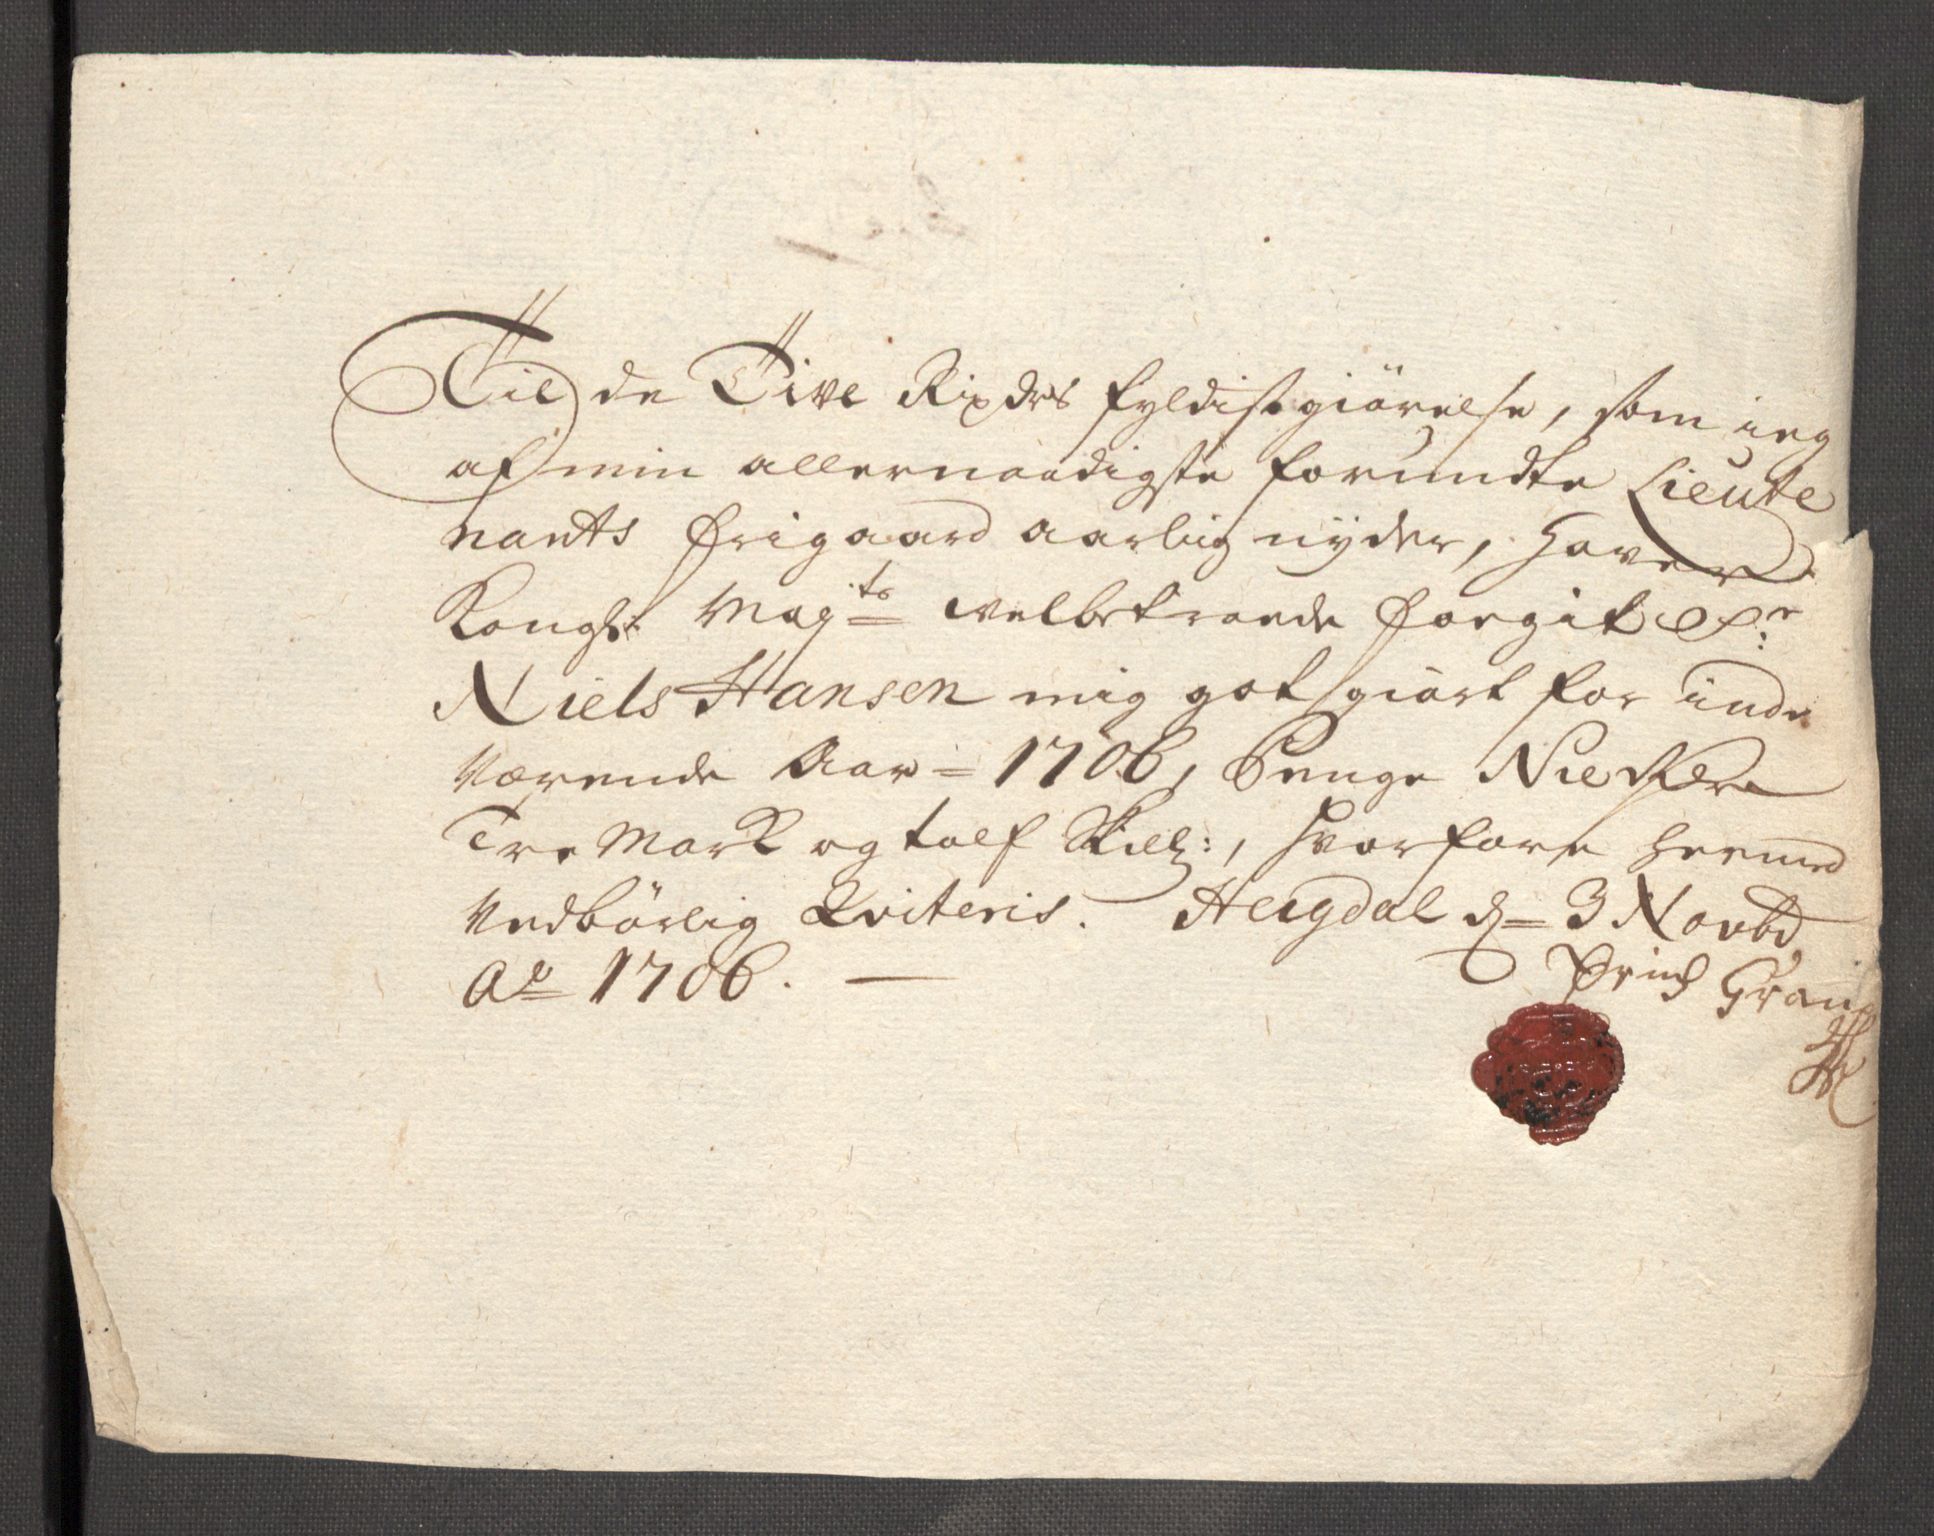 Til de Tive Rixdrs fyldistgiörelse, som ieg
af min allernaadigste forundte Lieute
nants frigaard aarlig nyder, haver
Kongl: Maÿ:ts velbetroede foegit Sr:
Niels Hansen mig got giört for inde
værende Aar = 1706, Penge Nie Rdr
Tre Mark og tolf Skill:, hvorfore hermed
vedbörlig Qviteris. Heigdal d = 3 Novbr
Ao 1706. —